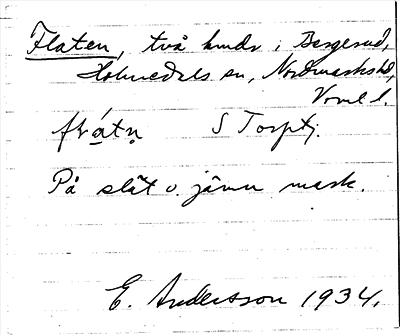 Flaten, två hmdr i Bergerud,
Holmedals sn, Nordmarkshd,
Vrml l.
S Torptj.
På slät o. jämn mark.
E. Andersson 1934.